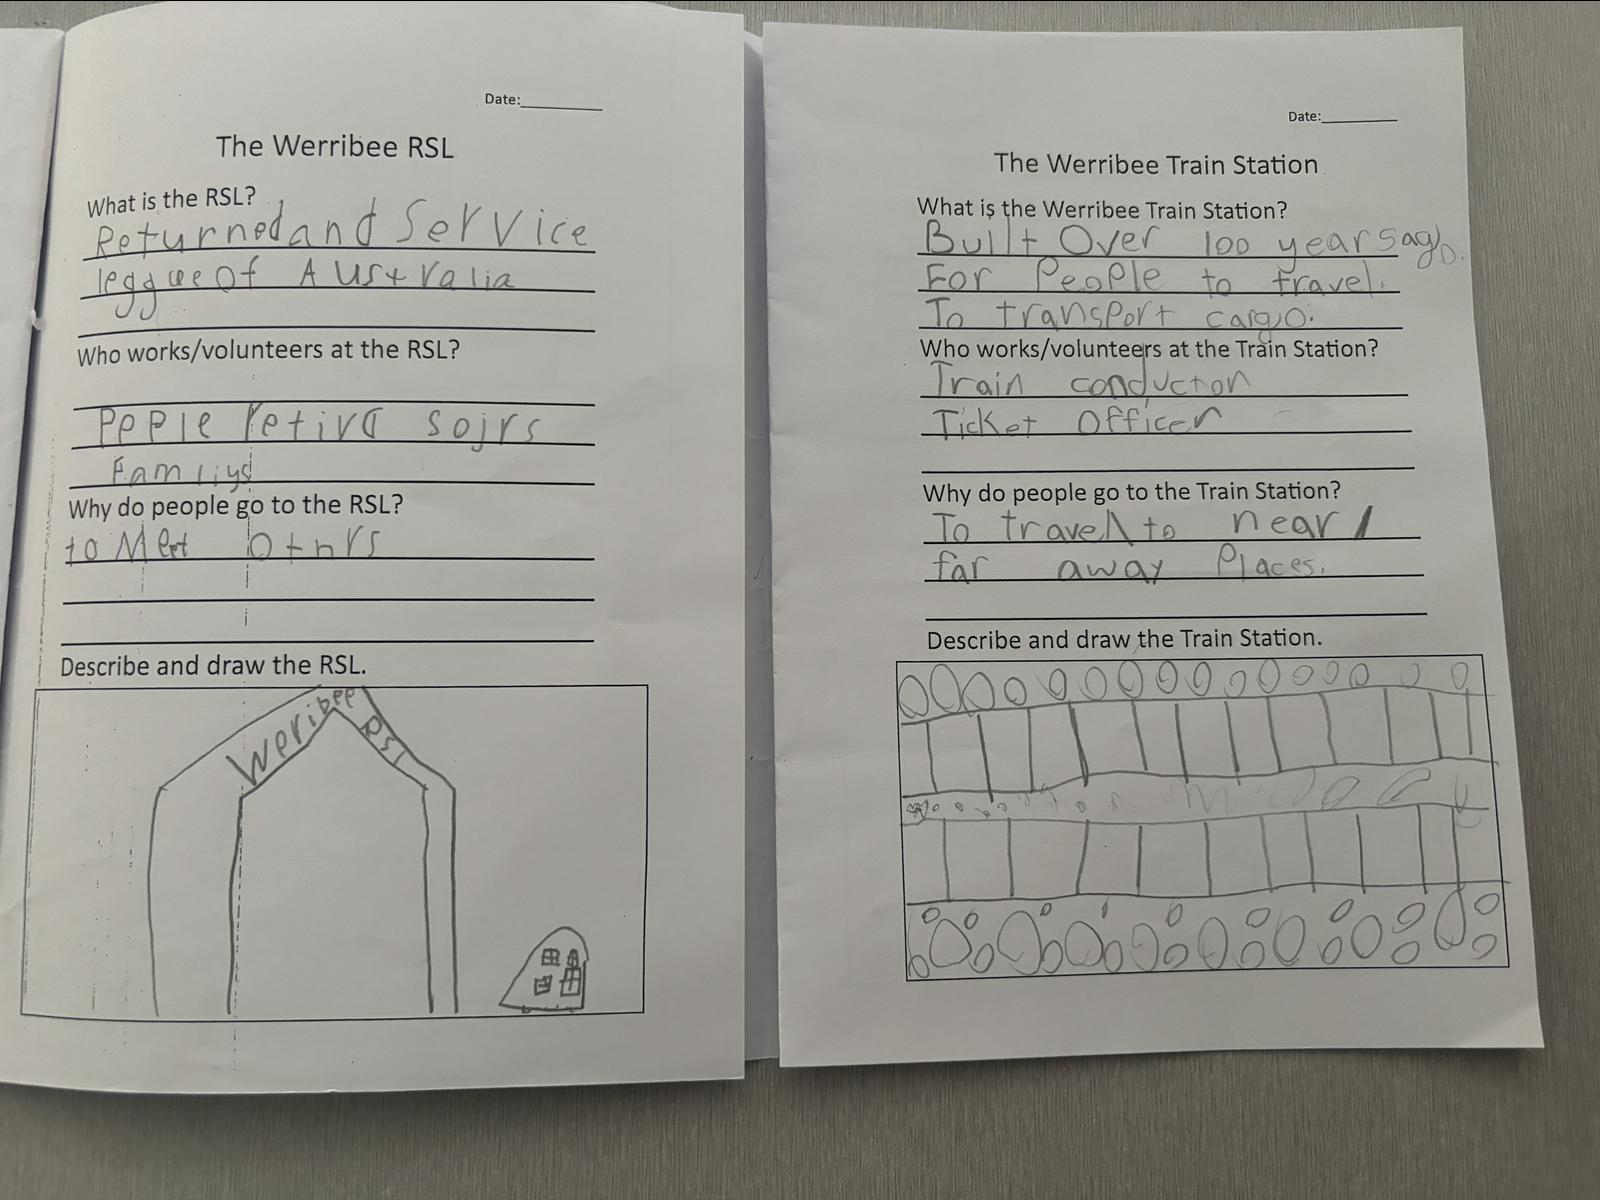 Date:
The Werribee RSL
What is the RSL?
Returned and Service
leggue of Australia
Who works/volunteers at the RSL?
Peple retird sojrs
Famliys
Why do people go to the RSL?
to Meet Othrs
Describe and draw the RSL.
Weribee RSL
Date:
The Werribee Train Station
What is the Werribee Train Station?
Built Over 100 years ago.
For People to travel.
To transport cargo.
Who works/volunteers at the Train Station?
Train conductor
Ticket Officer
Why do people go to the Train Station?
To travel to near /
far away Places.
Describe and draw the Train Station.